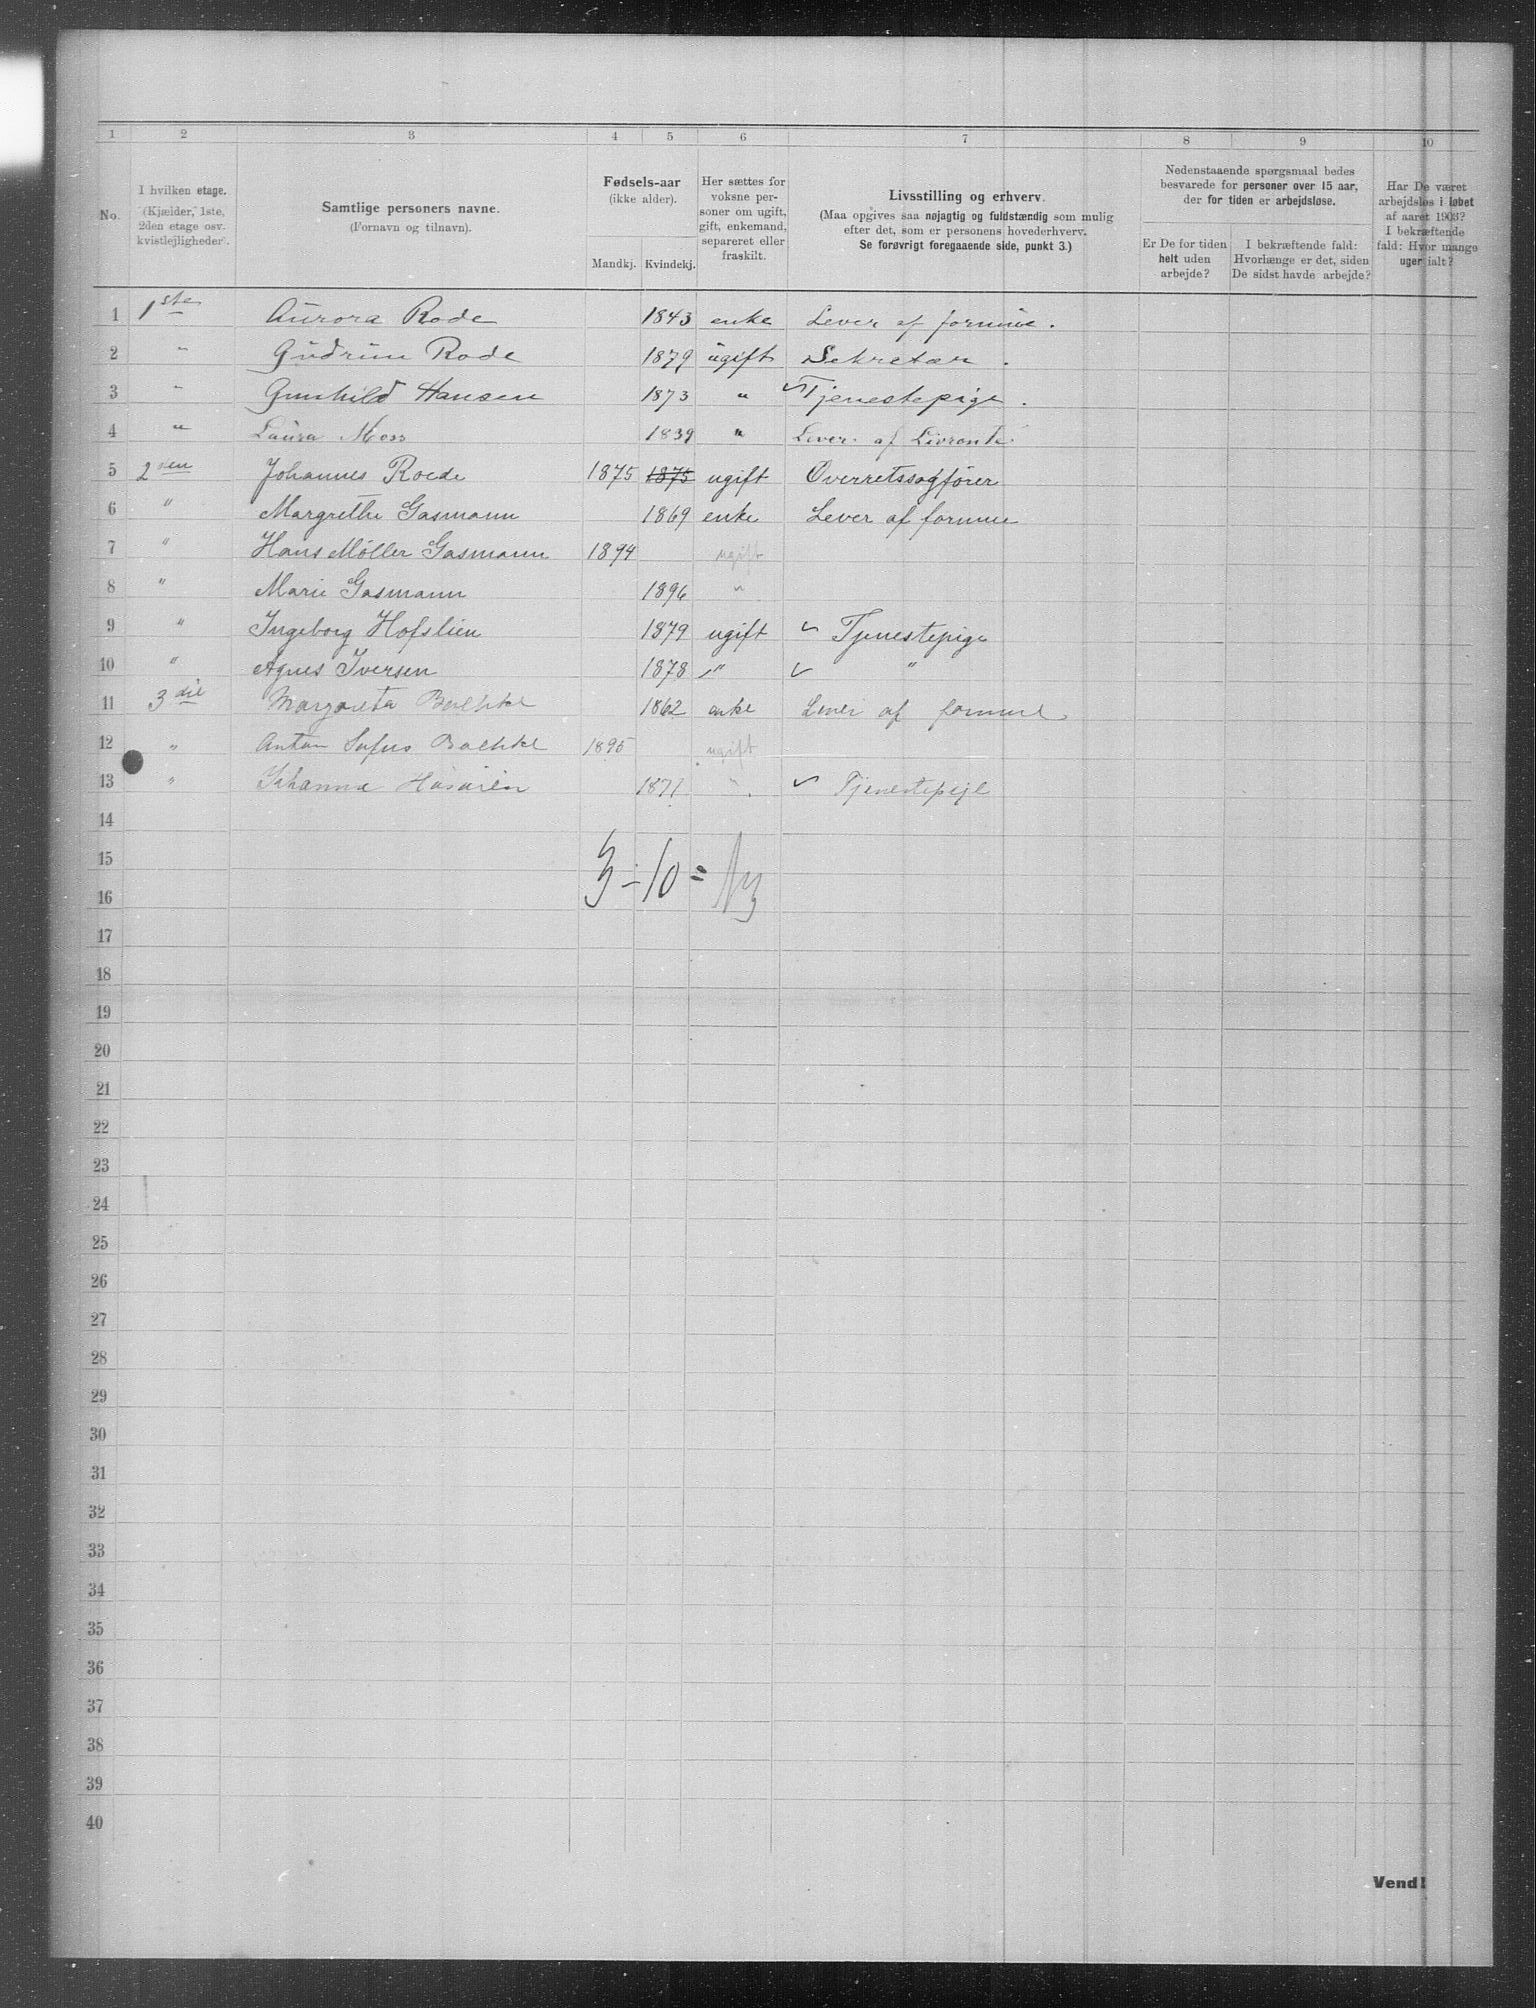 1 2 3 4 5 6 7 8 9 10
No.
I hvilken etage.
(Kjælder, 1ste,
2den etage osv.
kvistlejligheder).
Samtlige personers navne.
(Fornavn og tilnavn).
Fødsels-aar
(ikke alder).
Mandkj. Kvindekj.
Her sættes for
voksne per-
soner om ugift,
gift, enkemand,
separeret eller
fraskilt.
Livsstilling og erhverv.
(Maa opgives saa nøjagtig og fuldstændig som mulig
efter det, som er personens hovederhverv.
Se forøvrigt foregaaende side, punkt 3.)
Nedenstaaende spørgsmaal bedes
besvarede for personer over 15 aar,
der for tiden er arbejdsløse.
Er De for tiden
helt uden
arbejde?
I bekræftende fald:
Hvorlænge er det, siden
De sidst havde arbejde?
Har De været
arbejdsløs i løbet
af aaret 1903?
I bekræftende
fald: Hvor mange
uger ialt?
1 1ste Aurora Rode 1843 enke Lever af formue.
2 " Gudrun Rode 1879 ugift Sekretær.
3 " Gunhild Hansen 1873 " Tjenestepige.
4 " Laura Moss 1839 " Lever af Livrente.
5 2den Johannes Roede 1875 1875 ugift Overretssagfører
6 " Margrethe Gasmann 1869 enke Lever af formue
7 " Hans Møller Gasmann 1894 ugift
8 " Marie Gasmann 1896 "
9 " Ingeborg Hofslien 1879 ugift Tjenestepige
10 " Agnes Iversen 1878 " "
11 3die Margareta 1862 enke Lever af formue
12 " Anton Sofus 1895 ugift
13 " Johanna 1871 " Tjenestepige
14
15
3 - 10 = 13
16
17
18
19
20
21
22
23
24
25
26
27
28
29
30
31
32
33
34
35
36
37
38
39
40
Vend!